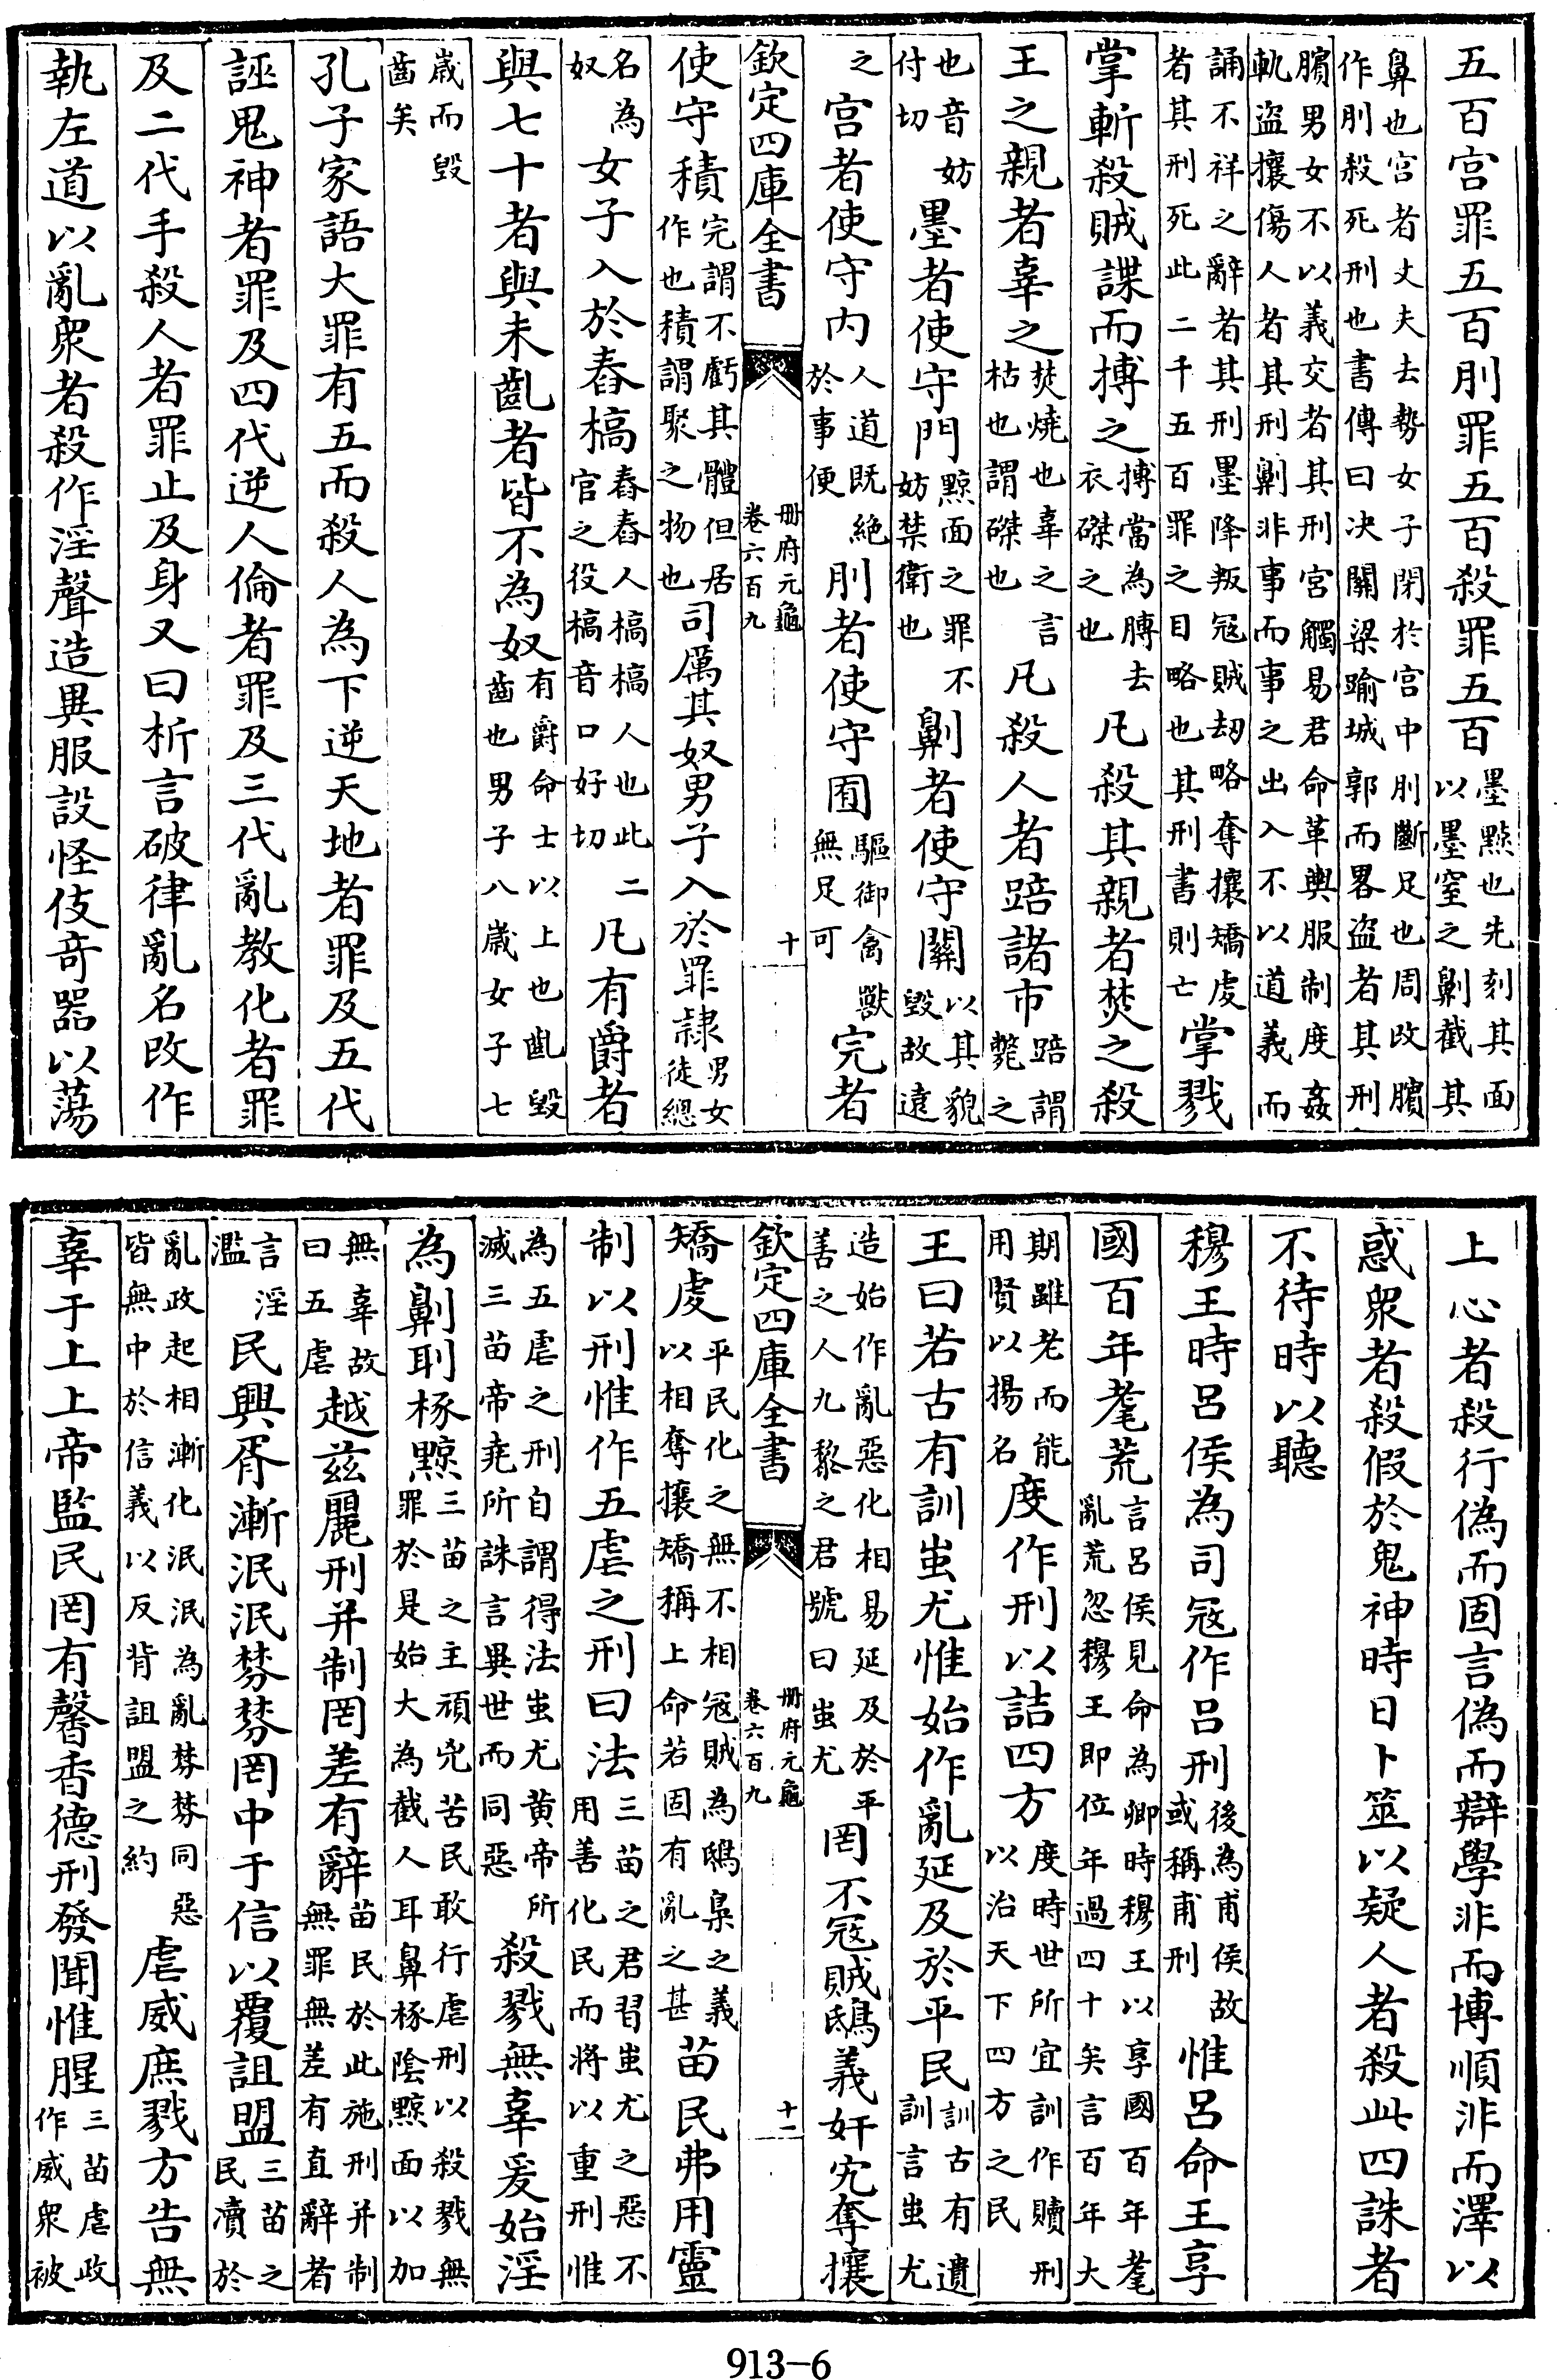 五百宫罪五百刖罪五百殺罪五百墨黥也先刻其面以墨窒之劓截其
鼻也宫者丈夫去勢女子閉於宫中刖斷足也周改臏作刖殺死刑也書傳曰决關梁踰城郭而畧盗者其刑
臏男女不以義交者其刑宫觸易君命革輿服制度姦軌盗攘傷人者其刑劓非事而事之出入不以道義而
誦不祥之辭者其刑墨降叛冦賊刼略奪攘矯䖍者其刑死此二千五百罪之目略也其刑書則亡掌戮
掌斬殺賊諜而搏之搏當為膊去衣磔之也凡殺其親者焚之殺
王之親者辜之焚燒也辜之言枯也謂磔也凡殺人者踣諸市踣謂斃之
也音妨付切墨者使守門黥面之罪不妨禁衛也劓者使守關以其貌毁故遠
之宫者使守内人道既絶於事便刖者使守囿驅御禽獸無足可完者
欽定四庫全書 冊府元龜卷六百九 十
使守積完謂不虧其體但居作也積謂聚之物也司厲其奴男子入於罪隸男女徒總
名為奴女子入於舂槁舂舂人槁槁人也此二官之役槁音口好切凡有爵者
與七十者與未齓者皆不為奴有爵命士以上也齓毁齒也男子八歲女子七
歲而毁齒矣
孔子家語大罪有五而殺人為下逆天地者罪及五代
誣鬼神者罪及四代逆人倫者罪及三代亂教化者罪
及二代手殺人者罪止及身又曰析言破律亂名改作
執左道以亂衆者殺作淫聲造異服設怪伎奇器以蕩
上心者殺行偽而固言偽而辯學非而博順非而澤以
惑衆者殺假於鬼神時日卜筮以疑人者殺此四誅者
不待時以聽
穆王時呂侯為司冦作呂刑後為甫侯故或稱甫刑惟呂命王享
國百年耄荒言呂侯見命為卿時穆王以享國百年耄亂荒忽穆王即位年過四十矣言百年大
期雖老而能用賢以揚名度作刑以詰四方度時世所宜訓作贖刑以治天下四方之民
王曰若古有訓蚩尤惟始作亂延及於平民訓古有遺訓言蚩尤
造始作亂惡化相易延及於平善之人九黎之君號曰蚩尤罔不冦賊鴟義奸宄奪攘
欽定四庫全書 冊府元龜卷六百九 十一
矯䖍平民化之無不相冦賊為鴟梟之義以相奪攘矯稱上命若固有亂之甚苗民弗用靈
制以刑惟作五虐之刑曰法三苗之君習蚩尤之惡不用善化民而將以重刑惟
為五虐之刑自謂得法蚩尤黄帝所滅三苗帝堯所誅言異世而同惡殺戮無辜爰始淫
為劓刵椓黥三苗之主頑兇苦民敢行虐刑以殺戮無罪於是始大為截人耳鼻椓陰黥面以加
無辜故曰五虐越兹麗刑并制罔差有辭苗民於此施刑并制無罪無差有直辭者
言淫濫民興胥漸泯泯棼棼罔中于信以覆詛盟三苗之民瀆於
亂政起相漸化泯泯為亂棼棼同惡皆無中於信義以反背詛盟之約虐威庶戮方告無
辜于上上帝監民罔有馨香德刑發聞惟腥三苗虐政作威衆被
913-6